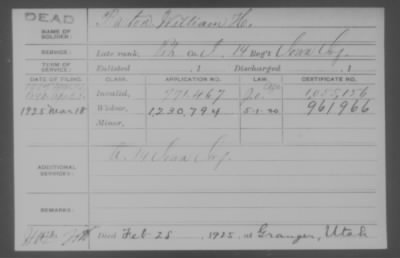 DEAD
NAME OF SOLDIER: William H.
SERVICE: Late rank, Co. I, 14 Reg't Iowa Inf.
TERM OF SERVICE: Enlisted , 1 Discharged , 1
DATE OF FILING. CLASS. APPLICATION NO. LAW. CERTIFICATE NO.
Invalid, 771.467
1925 Mar 18 Widow, 1,230,794 5-1-20 961966
Minor,
ADDITIONAL SERVICES: 14 Iowa Inf.
REMARKS:
Died Feb 28, 1925, at Granger, Utah